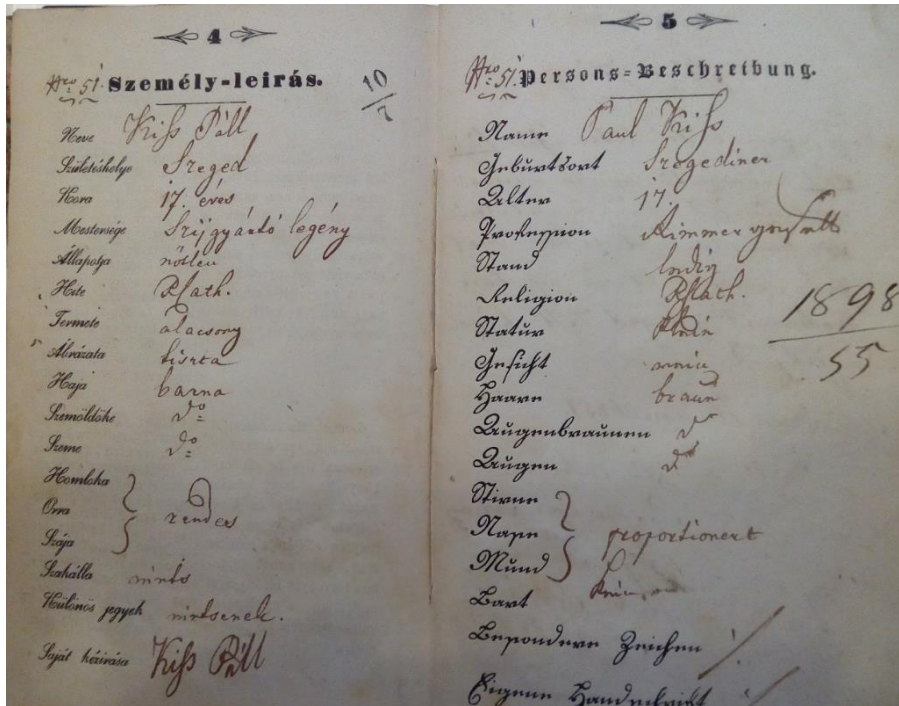 4
Nro 51. Személy-leirás. 10/7
Neve Kiss Páll
Születéshelye Szeged
Kora 17. éves
Mestersége Szijgyártó legény
Állapotja nőtlen
Hite R. Cath.
Termete alacsony
Ábrázata tiszta
Haja barna
Szemöldöke do
Szeme do
Homloka
Orra rendes
Szája
Szakálla nints
Különös jegyek nintsenek.
Saját kézirása Kiss Páll
5
Nro 51. Persons-Beschreibung.
Name Paul Kiss
Geburtsort Szegediner
Alter 17.
Profession Riemergesell
Stand ledig
Religion R. Cath.
Statur klein
1898
Gesicht rein
55
Haare braun
Augenbraunen do
Augen do
Stirne
Nase proportionert
Mund
Bart
Besondere Zeichen ./.
Eigene Handschrift ./.